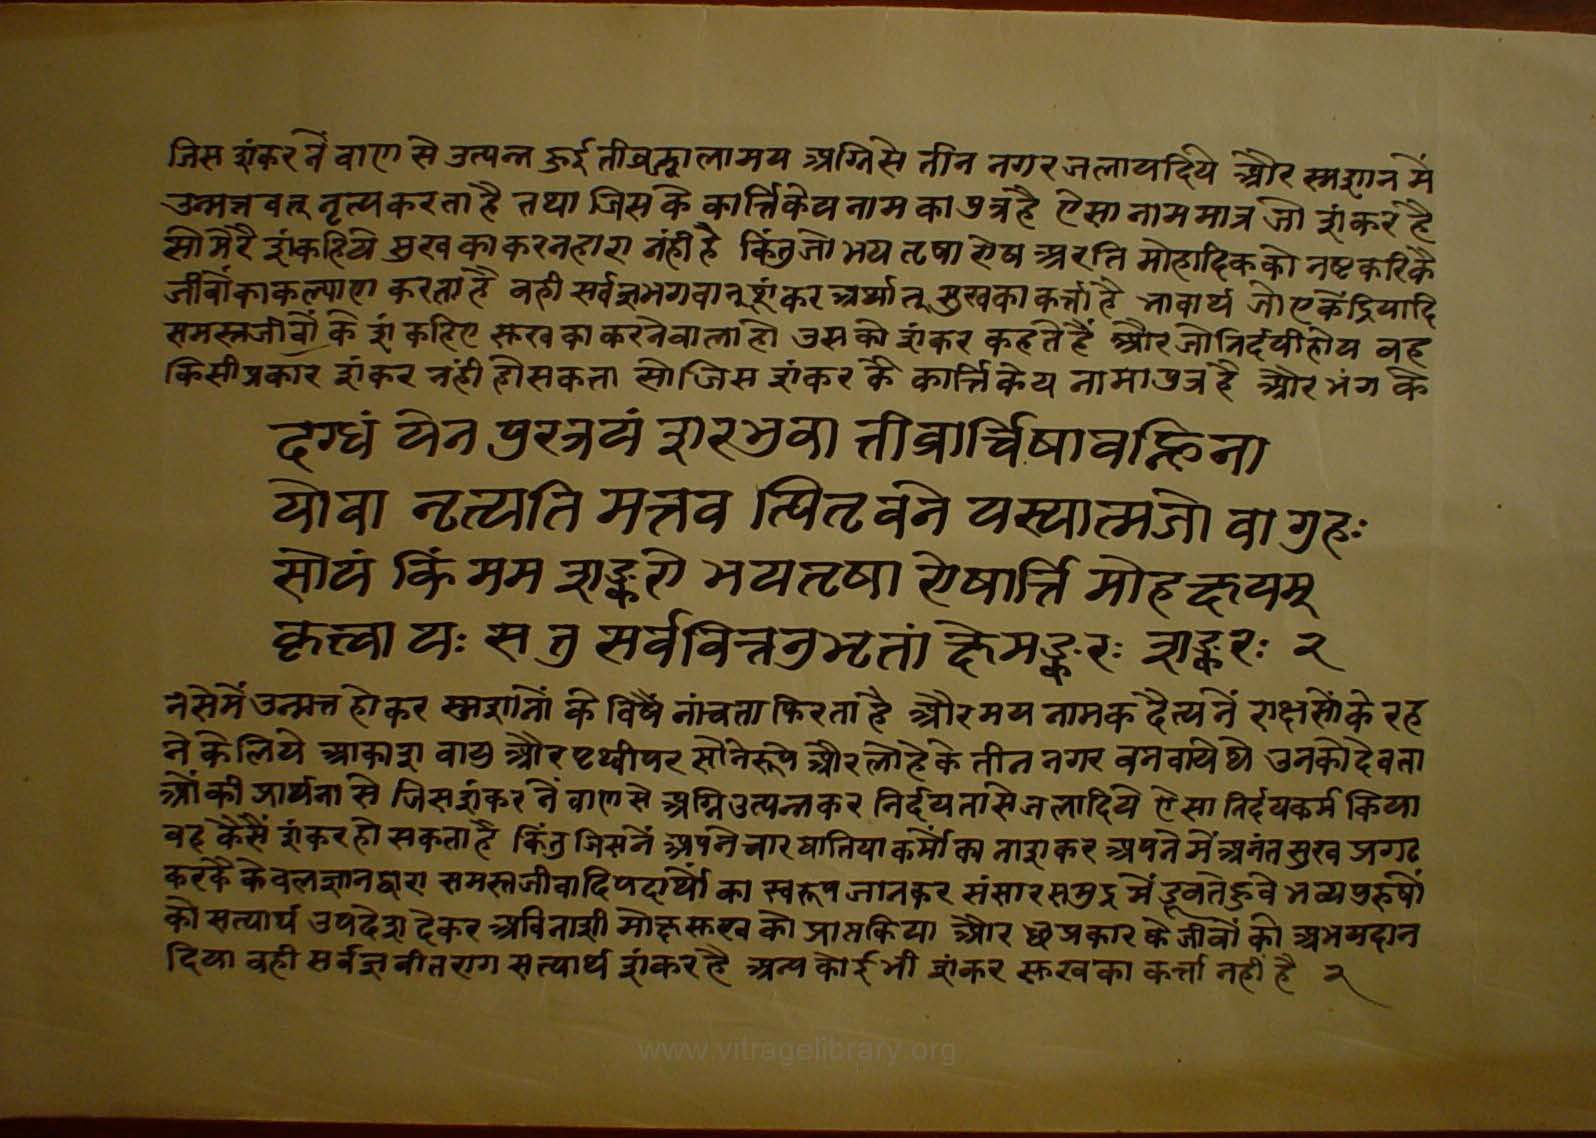 जिस शंकर नें वाण से उत्पन्न हुई तीव्रज्वालामय अग्निसे तीन नगर जलायदिये और स्मशान में
उन्मत्तवत् नृत्यकरता है तथा जिस के कार्त्तिकेय नाम का पुत्र है ऐसा नाम मात्र जो शंकर है
सो मेरै शंकहिये सुख का करनहारा नंही है किंतु जो भय तृषा रोष अरति मोहादिक को नष्ट करिकै
जीवों का कल्याण करता है वही सर्वज्ञभगवान् शंकर अर्थात् सुखका कर्त्ता है भावार्थ जो एकेंद्रियादि
समस्तजीवों के शं कहिए सुख का करनेवाला हो उस को शंकर कहते हैं और जो निर्दयी होय वह
किसीप्रकार शंकर नंही हो सकता सो जिस शंकर के कार्त्तिकेय नामा पुत्र है और भंग के
दग्धं येन पुरत्रयं शरभुवा तीव्रार्च्चिषा वह्निना
यो वा नृत्यति मत्तव त्पितृवने यस्यात्मजो वा गुहः
सोयं किं मम शङ्करो भयतृषा रोषार्त्ति मोहक्षयम्
कृत्त्वा यः स तु सर्ववित्तनुभृतां क्षेमङ्करः शङ्करः २
नेसेमें उन्मत्त होकर स्मशानों के विषैं नांचता फिरता है और मय नामक दैत्य नें राक्षसों के रह
ने के लिये आकाश वायु और पृथ्वीपर सोनेरूपे और लोहे के तीन नगर वनवाये थे उनको देवता
ओं की प्रार्थना से जिस शंकर नें वाण से अग्नि उत्पन्नकर निर्दयतासे जलादिये ऐसा निर्दयकर्म किया
वह कैसैं शंकर हो सकता है किंतु जिसनें अपने चार घातिया कर्मों का नाश कर अपने में अनंत सुख प्रगट
करकै केवलज्ञानद्वारा समस्तजीवादिपदार्थों का स्वरूप जानकर संसार समुद्र में डूवतेहुवे भव्य पुरुषों
को सत्यार्थ उपदेश देकर अविनाशी मोक्षसुख को प्राप्तकिया और छै प्रकार के जीवों को अभयदान
दिया वही सर्वज्ञ वीतराग सत्यार्थ शंकर है अन्य कोई भी शंकर सुख का कर्त्ता नहीं है २
www.vitragelibrary.org